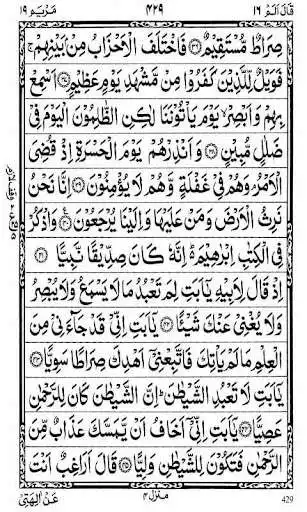 قَالَ اَلَمْ ١٦ ٤٢٩ مَرْيَم ١٩
صِرَاطٌ مُّسْتَقِيْمٌ ﴿٣٦﴾ فَاخْتَلَفَ الْاَحْزَابُ مِنْۢ بَيْنِهِمْ ۚ
فَوَيْلٌ لِّلَّذِيْنَ كَفَرُوْا مِنْ مَّشْهَدِ يَوْمٍ عَظِيْمٍ ﴿٣٧﴾ اَسْمِعْ
بِهِمْ وَاَبْصِرْ ۙ يَوْمَ يَاْتُوْنَنَا لٰكِنِ الظّٰلِمُوْنَ الْيَوْمَ فِيْ
ضَلٰلٍ مُّبِيْنٍ ﴿٣٨﴾ وَاَنْذِرْهُمْ يَوْمَ الْحَسْرَةِ اِذْ قُضِيَ
الْاَمْرُ ۘ وَهُمْ فِيْ غَفْلَةٍ وَّهُمْ لَا يُؤْمِنُوْنَ ﴿٣٩﴾ اِنَّا نَحْنُ
نَرِثُ الْاَرْضَ وَمَنْ عَلَيْهَا وَاِلَيْنَا يُرْجَعُوْنَ ﴿٤٠﴾ وَاذْكُرْ
فِي الْكِتٰبِ اِبْرٰهِيْمَ ۬ؕ اِنَّهٗ كَانَ صِدِّيْقًا نَّبِيًّا ﴿٤١﴾
اِذْ قَالَ لِاَبِيْهِ يٰۤاَبَتِ لِمَ تَعْبُدُ مَا لَا يَسْمَعُ وَلَا يُبْصِرُ
وَلَا يُغْنِيْ عَنْكَ شَيْـًٔا ﴿٤٢﴾ يٰۤاَبَتِ اِنِّيْ قَدْ جَآءَنِيْ مِنَ
الْعِلْمِ مَا لَمْ يَاْتِكَ فَاتَّبِعْنِيْۤ اَهْدِكَ صِرَاطًا سَوِيًّا ﴿٤٣﴾
يٰۤاَبَتِ لَا تَعْبُدِ الشَّيْطٰنَ ؕ اِنَّ الشَّيْطٰنَ كَانَ لِلرَّحْمٰنِ
عَصِيًّا ﴿٤٤﴾ يٰۤاَبَتِ اِنِّيْۤ اَخَافُ اَنْ يَّمَسَّكَ عَذَابٌ مِّنَ
الرَّحْمٰنِ فَتَكُوْنَ لِلشَّيْطٰنِ وَلِيًّا ﴿٤٥﴾ قَالَ اَرَاغِبٌ اَنْتَ
عَنْ اٰلِهَتِيْ منزل ٤ 429